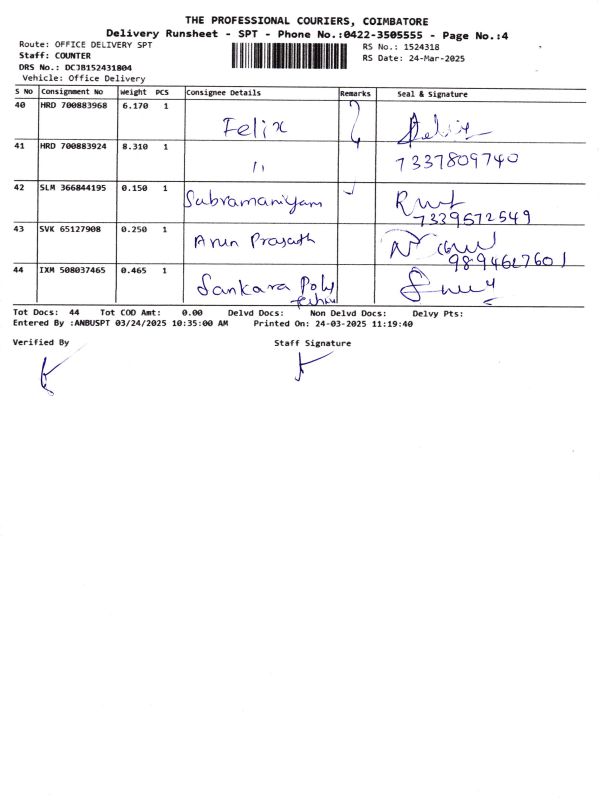 THE PROFESSIONAL COURIERS, COIMBATORE
Delivery Runsheet - SPT - Phone No.:0422-3505555 - Page No.:4
Route: OFFICE DELIVERY SPT
RS No.: 1524318
Staff: COUNTER
RS Date: 24-Mar-2025
DRS No.: DCJB152431804
Vehicle: Office Delivery
S No Consignment No Weight PCS Consignee Details Remarks Seal & Signature
40 HRD 700883968 6.170 1 Felix Felix
41 HRD 700883924 8.310 1 11 7337809740
42 SLM 366844195 0.150 1 Subramaniyam
7339572549
43 SVK 65127908 0.250 1 Arun Prasath
9894617601
44 IXM 508037465 0.465 1 Sankara Poly
Tot Docs: 44 Tot COD Amt: 0.00 Delvd Docs: Non Delvd Docs: Delvy Pts:
Entered By :ANBUSPT 03/24/2025 10:35:00 AM Printed On: 24-03-2025 11:19:40
Verified By Staff Signature